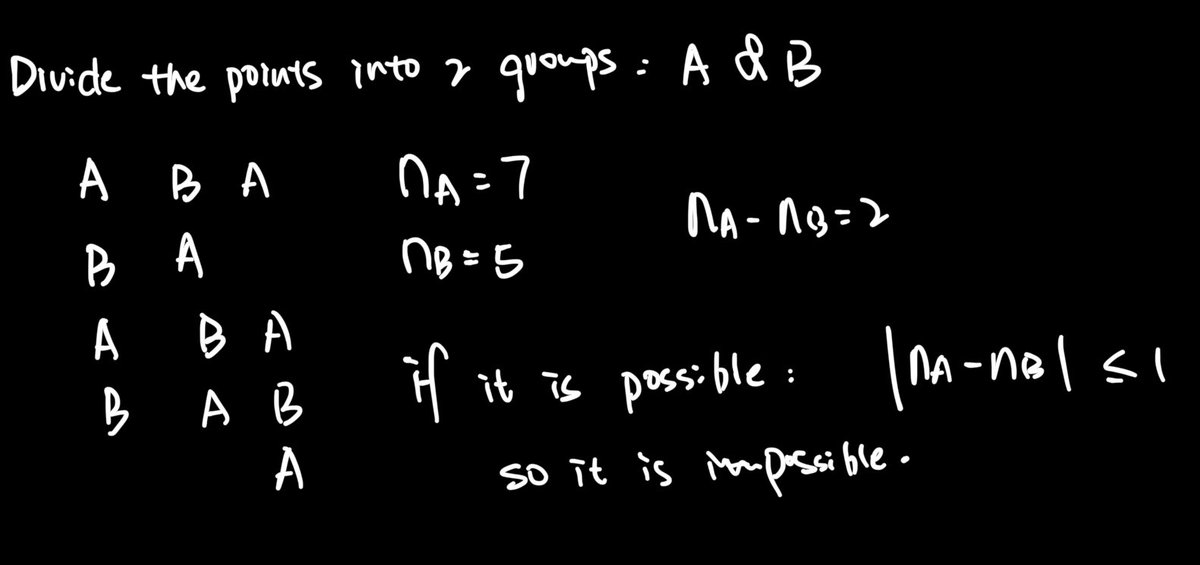 Divide the points into 2 groups : A & B
A B A
B A
A B A
B A B
A
nA = 7
nB = 5
nA - nB = 2
if it is possible : |nA - nB| ≤ 1
so it is impossible.